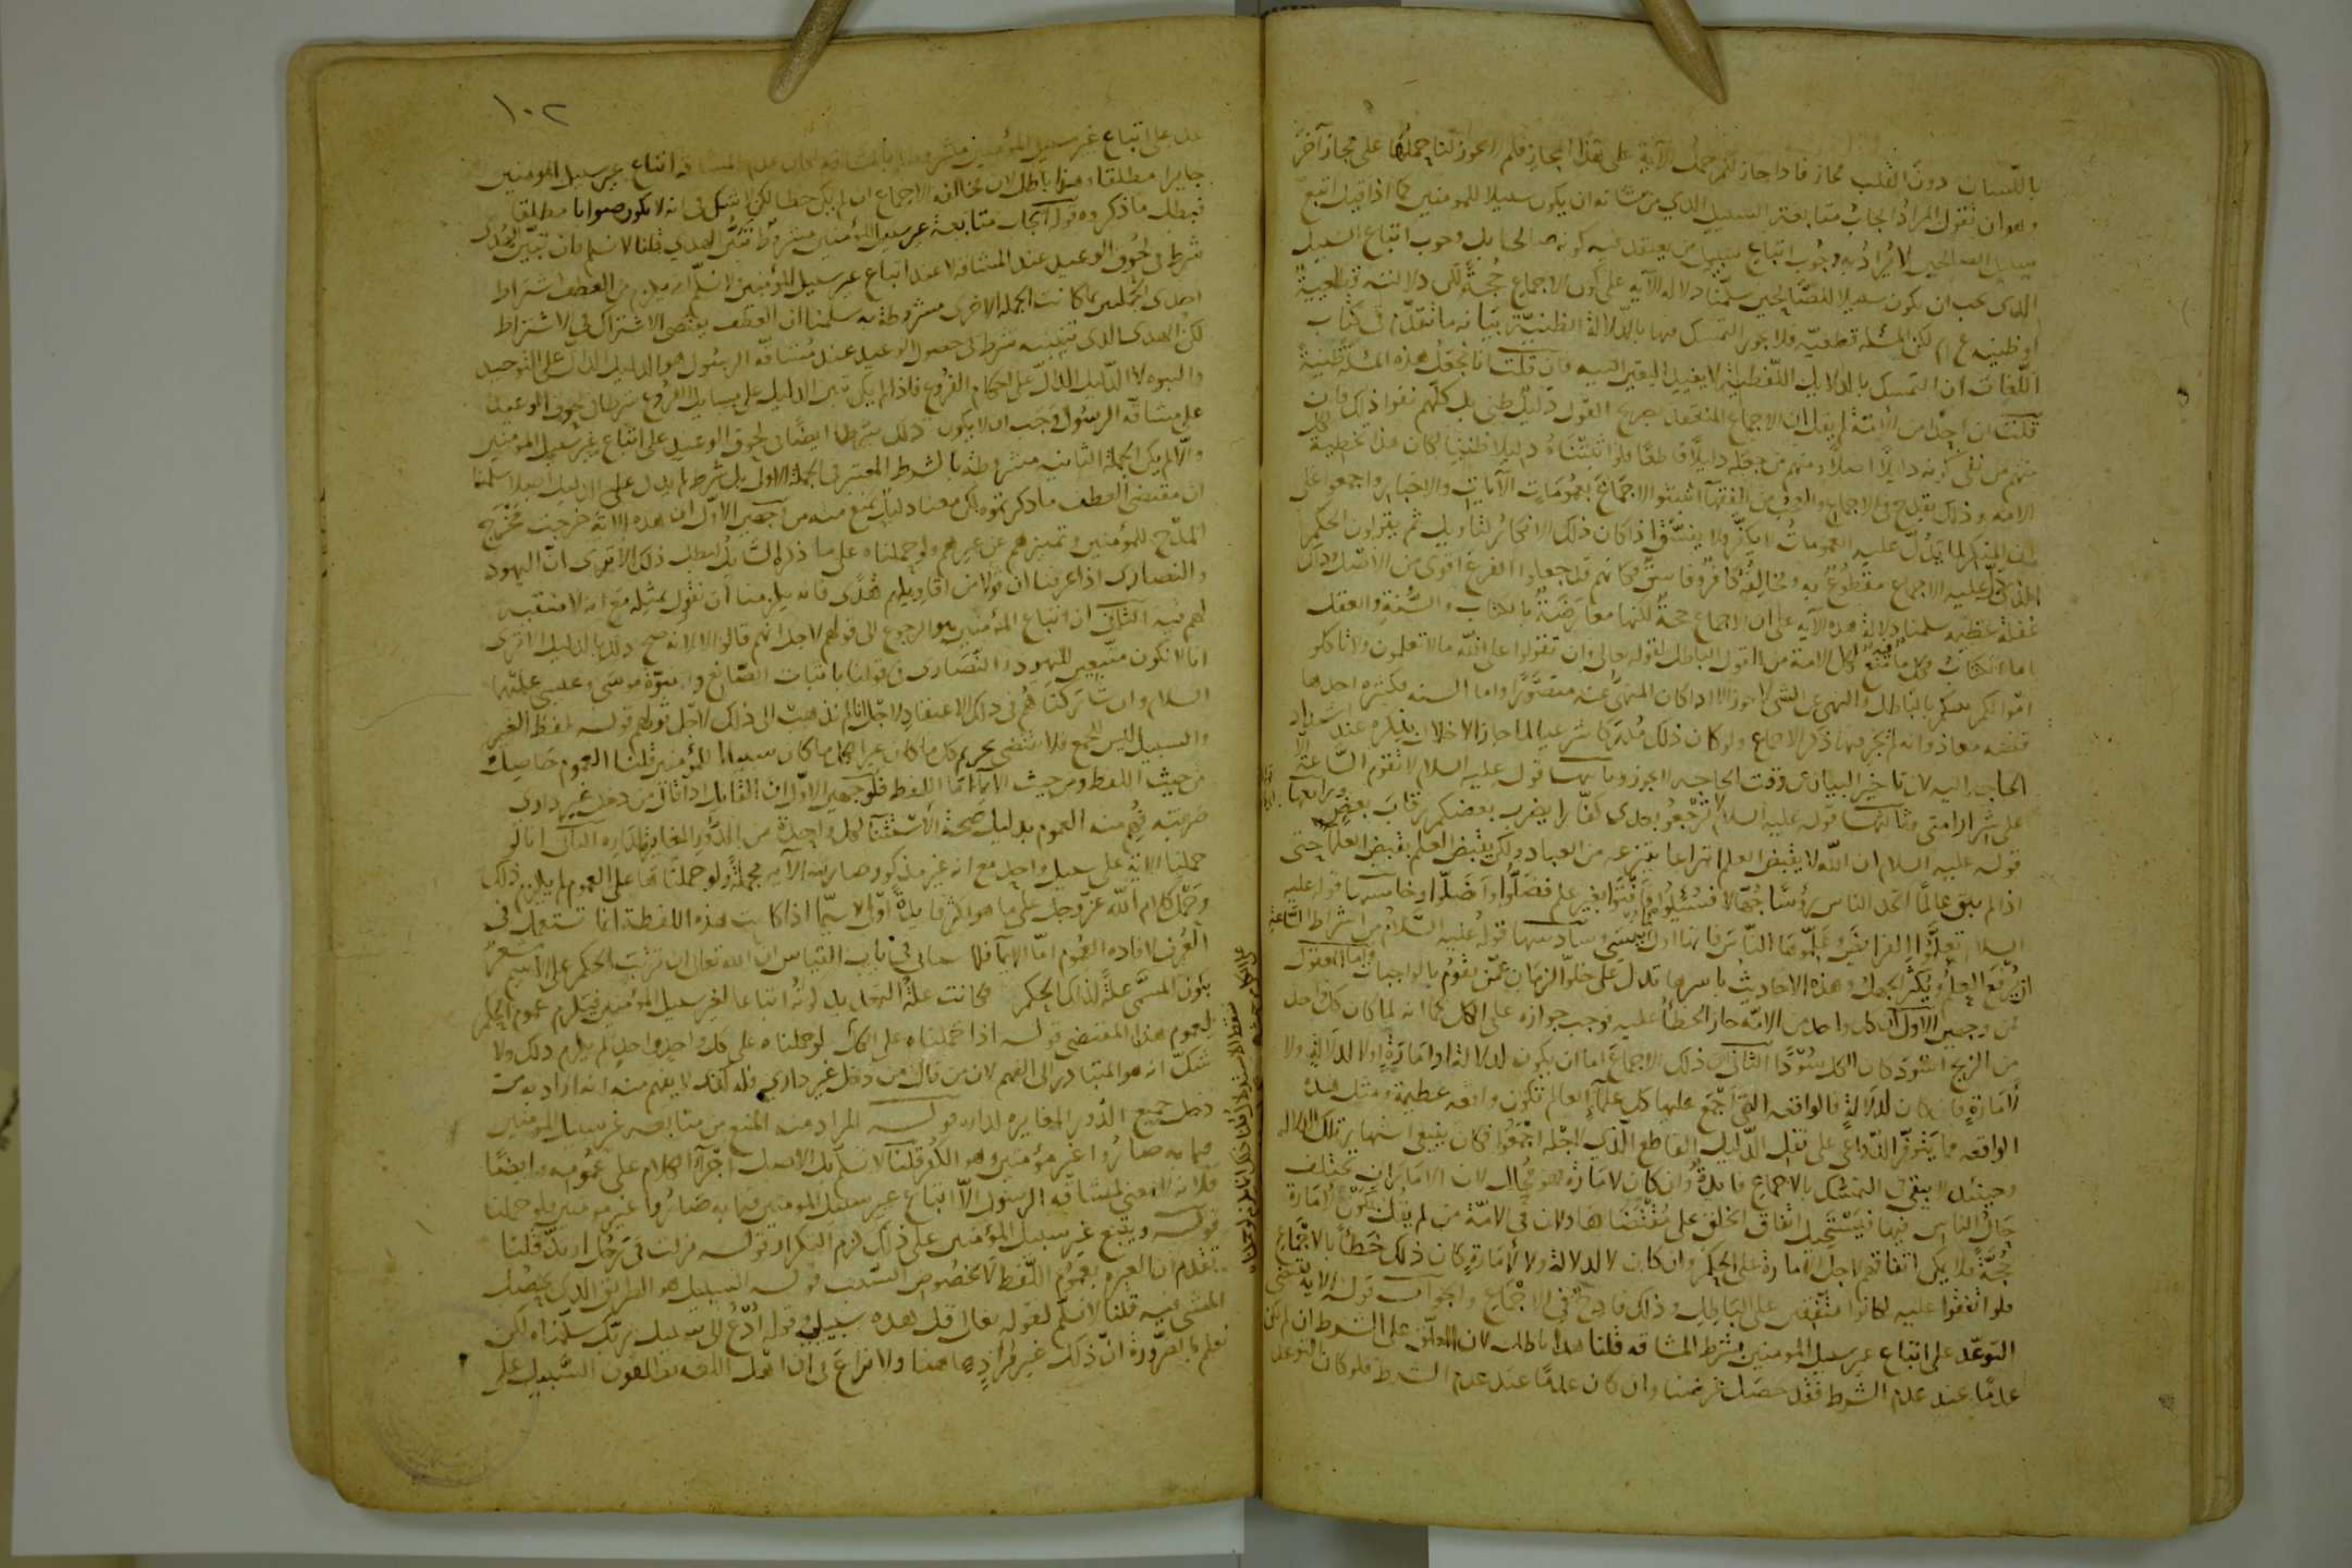 باللسان دون القلب مجاز فاذا جاز لكم حمل الآية على هذا المجاز فلم لا يجوز لنا حملها على مجاز آخر
وهو ان نقول المراد ايجاب متابعة السبيل الذي من شانه ان يكون سبيلا للمومنين كما اذا قيل اتبع
سبيل الصالحين لا يراد به وجوب اتباع سبيل من يعتقد فيه كونه صالحا بل وجوب اتباع السبيل
الذى يجب ان يكون سبيلا للصالحين سلمنا دلالة الآية على كون الاجماع حجة لكن دلالته قطعية
او ظنيه ع م لكن المسئلة قطعيه فلا يجوز التمسك فيها بالدلالة الظنية بيانه ما تقدم في كتاب
اللغات ان التمسك بالدلايل اللفظية لا يفيد اليقين البته فان قلت انا نجعل هذه المسئلة ظنية
قلت ان احدا من الائمة لم يقل ان الاجماع المنعقد بصريح القول دليل ظني بل كلهم نفوا ذلك فان
منهم من نفى كونه دليلا اصلا ومنهم من جعله دليلا قاطعا فلو اثبتناه دليلا ظنيا لكان هذا تخطية لكل
الامه وذلك يقدح في الاجماع والعجب من الفقها اثبتوا الاجماع بعمومات الآيات والاخبار واجمعوا على
ان المنكر لما يدل عليه العمومات لا يكفر ولا يفسق اذا كان ذلك الانكار لتاويل ثم يقولون الحكم
الذى دل عليه الاجماع مقطوع به ومخالفه كافر وفاسق فكانهم قد جعلوا الفرع اقوى من الاصل وذلك
غفلة عظيمه سلمنا دلالة هذه الآيه على ان الاجماع حجة لكنها معارضة بالكتاب والسنة والعقل
اما الكتاب فكل ما فيه منع لكل الامة من القول الباطل كقوله تعالى وان تقولوا على الله ما لا تعلمون ولا تاكلوا
اموالكم بينكم بالباطل والنهى عن الشى لا يجوز الا اذا كان المنهى عنه متصورا واما السنه فكثيره احدها
قصه معاذ وانه لم يجر فيها ذكر الاجماع ولو كان ذلك مدركا شرعيا لما جاز الاخلال بذكره عند اشتداد
الحاجه اليه لان تاخير البيان عن وقت الحاجه لا يجوز وثانيها قوله عليه السلام لا تقوم الساعة الا
على شرار امتى وثالثها قوله عليه السلام لا ترجعوا بعدى كفارا يضرب بعضكم رقاب بعض ورابعها
قوله عليه السلام ان الله لا يقبض العلم انتزاعا ينتزعه من العباد ولكن يقبض العلم بقبض العلما حتى
اذا لم يبق عالما اتخذ الناس رؤسا جهالا فسئلوا فافتوا بغير علم فضلوا واضلوا وخامسها قوله عليه
السلام تعلموا الفرايض وعلموها الناس فانها اول ما ينسى وسادسها قوله عليه السلام من اشراط الساعة
ان يرفع العلم ويكثر الجهل وهذه الاحاديث باسرها تدل على خلو الزمان عمن يقوم بالواجبات واما المعقول
فمن وجهين الاول ان كل واحد من الامة جاز الخطأ عليه فوجب جوازه على الكل كما انه لما كان كل واحد
من الزنج اسود كان الكل سودا الثانى ان ذلك الاجماع اما ان يكون لدلالة او امارة او لا لدلالة ولا
لامارة فان كان لدلالة فالواقعه التى اجمع عليها كل علماء العالم تكون واقعه عظيمة ومثل هذه
الواقعه مما يتوفر الدواعى على نقل الدليل القاطع الذي لاجله اجمعوا فكان ينبغى اشتهار تلك الدلالة
وحينئذ لا يبقى فى التمسك بالاجماع فايدة وان كان لامارة فهو محال لان الامارات يختلف
حال الناس فيها فيستحيل اتفاق الخلق على مقتضاها ولان فى الامة من لم يقل بكون الامارة
حجة فلا يمكن اتفاقهم لاجل الامارة على الحكم وان كان لا لدلالة ولا لامارة كان ذلك خطأ بالاجماع
فلو اتفقوا عليه لكانوا متفقين على الباطل وذلك قادح فى الاجماع والجواب قوله الآية تقتضى
التوعد على اتباع غير سبيل المومنين بشرط المشاقه قلنا هذا باطل لان المعلق على الشرط ان لم يكن
عدما عند عدم الشرط فقد حصل غرضنا وان كان عدما عند عدم الشرط فلو كان التوعد
١٠٢
على اتباع غير سبيل المؤمنين مشروطا بالمشاقه لكان عند عدم المشاقه اتباع غير سبيل المومنين
جايزا مطلقا وهذا باطل لان مخالفة الاجماع ان لم يكن خطا لكن لا شك فى انه لا يكون صوابا مطلقا
فبطل ما ذكروه قوله ايجاب متابعة غير سبيل المؤمنين مشروط بتبين الهدى قلنا لا نسلم فان تبين الهدى
شرط فى لحوق الوعيد عند المشاقه لا عند اتباع غير سبيل المؤمنين لا نسلم انه يلزم من العطف اشتراط
احدى الجملتين بما كانت الجمله الاخرى مشروطة به سلمنا ان العطف يقتضى الاشتراك فى الاشتراط
لكن الهدى الذى تبينه شرط فى حصول الوعيد عند مشاقة الرسول هو الدليل الدال على التوحيد
والنبوه لا الدليل الدال على احكام الفروع فاذا لم يكن تبين الدليل على مسايل الفروع شرطا فى لحوق الوعيد
على مشاقة الرسول وجب ان لا يكون ذلك شرطا ايضا فى لحوق الوعيد على اتباع غير سبيل المومنين
والا لم يكن الجملة الثانيه مشروطة بالشرط المعتبر فى الجملة الاولى بل بشرط لم يدل عليه الدليل اصلا سلمنا
ان مقتضى العطف ما ذكرتموه لكن معنا دليل يمنع منه من وجهين الاول ان هذه الآية خرجت مخرج
المدح للمؤمنين وتميزهم عن غيرهم ولو حملناه على ما ذكره السايل لبطل ذلك الا ترى ان اليهود
والنصارى اذا عرفنا ان قولا من اقاويلهم هدى فانه يلزمنا ان نقول بمثله مع انه لا منقبه
لهم فيه الثانى ان اتباع المؤمنين هو الرجوع الى قولهم لاجل انهم قالوا لا لانه صح ذلك بالدليل الا ترى
انا لا نكون متبعين لليهود والنصارى فى قولنا باثبات الصانع ونبوة موسى وعيسى عليهما
السلام وان شاركناهم فى ذلك الاعتقاد لاجل انا لم نذهب الى ذلك لاجل قولهم قوله لفظ الغير
والسبيل ليس للجمع فلا يقتضى تحريم كل ما كان غيرا لكل ما كان سبيلا للمؤمنين قلنا العموم حاصل
من حيث اللفظ ومن حيث الايما اما اللفظ فلوجهين الاول ان القايل اذا قال من دخل غير دارى
ضربته فهم منه العموم بدليل صحة الاستثنا لكل واحدة من الدور المغايرة لداره الثانى انا لو
حملنا الآية على سبيل واحد مع انه غير مذكور صارت الآيه مجملة ولو حملناها على العموم لم يلزم ذلك
وحمل كلام الله عز وجل على ما هو اكثر فايدة اولى لا سيما اذا كانت هذه اللفظة انما تستعمل فى
العرف لافاده العموم اما الايما فلما سياتى فى باب القياس ان شاء الله تعالى ان ترتيب الحكم على الاسم مشعر
بكون المسمى علة لذلك الحكم فكانت علة التهديد كونه اتباعا لغير سبيل المؤمنين فيلزم عموم الحكم
لعموم هذا المقتضى قوله اذا حملناه على الكل لو حملناه على كل واحد واحد لم يلزم ذلك ولا
شك انه هو المتبادر الى الفهم لان من قال من دخل غير دارى فله كذا لا يفهم منه انه اراد به من
دخل جميع الدور المغايره لداره قوله المراد منه المنع من متابعه غير سبيل المومنين
فيما به صاروا غير مؤمنين وهو الكفر قلنا لا نسلم بل الاصل اجرآ الكلام على عمومه وايضا
فلانه لا معنى لمشاقه الرسول الا اتباع غير سبيل المومنين فيما به صاروا غير مومنين فلو حملنا
قوله ويتبع غير سبيل المؤمنين على ذلك لزم التكرار قوله نزلت فى رجل ارتد قلنا
تقدم ان العبره بعموم اللفظ لا بخصوص السبب قوله السبيل هو الطريق الذى يحصل
المشى فيه قلنا لا نسلم لقوله تعالى قل هذه سبيلى وقوله ادع الى سبيل ربك سلمناه لكن
نعلم بالضرورة ان ذلك غير مراد هاهنا ولا نزاع فى ان اهل اللغه يطلقون السبيل على